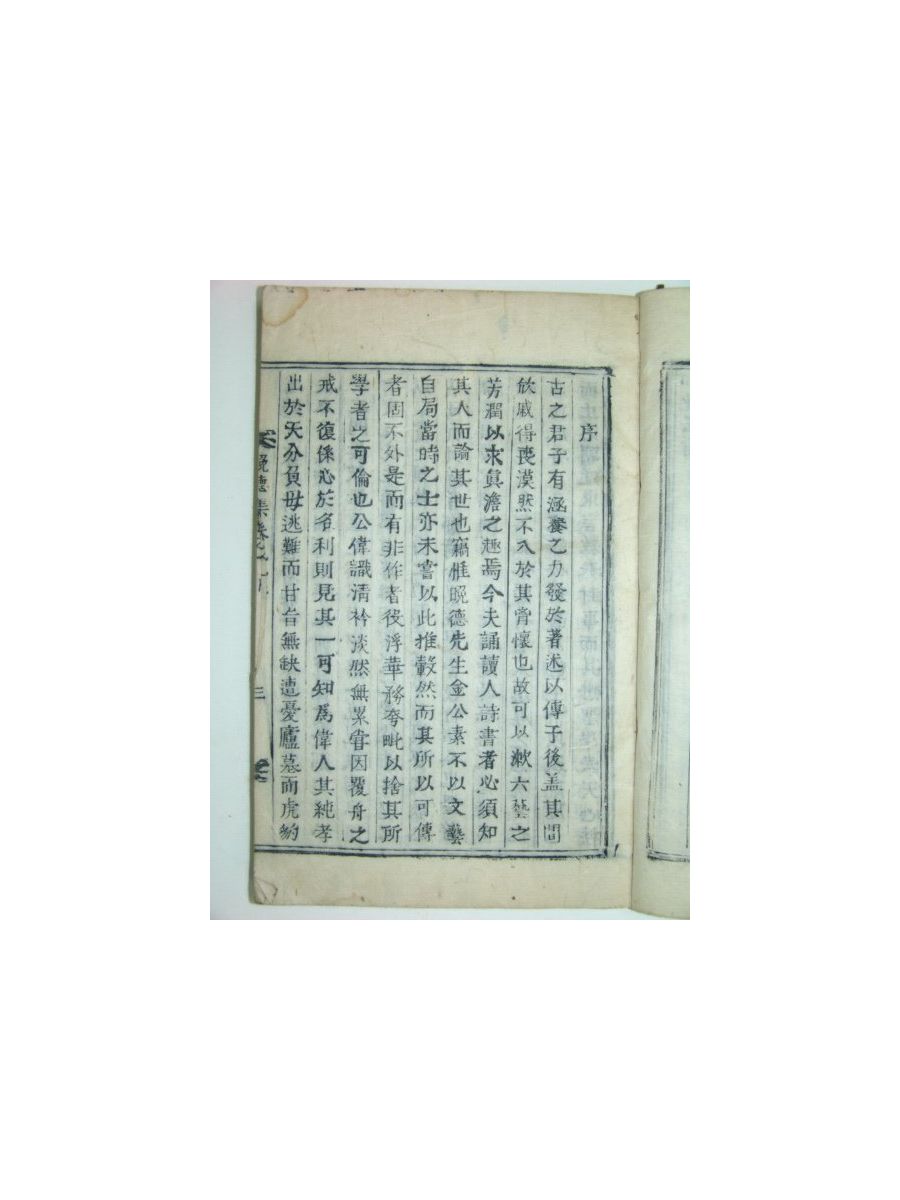 序
古之君子有涵養之力發於著述以傳于後盖其間
欣戚得喪漠然不入於其胷懷也故可以潄六藝之
芳潤以求眞澹之趣焉今夫誦讀人詩書者必須知
其人而論其世也竊惟晩德先生金公素不以文藝
自局當時之士亦未嘗以此推轂然而其所以可傳
者固不外是而有非作者役浮華務夸毗以捨其所
學者之可倫也公偉識淸衿淡然無累甞因覆舟之
戒不復係心於名利則見其一可知爲偉人其純孝
出於天分負母逃難而甘旨無缺遭憂廬墓而虎豹
晩德集卷之
三